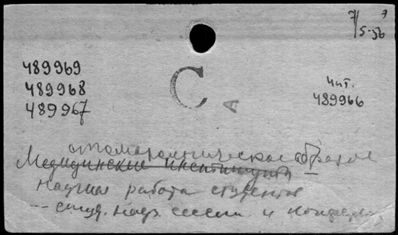 7/5-56
7
489969
489968
489967
С
А
чит.
489966
стоматологическое образов
Медицинские институты
Научная работа студентов
-- студ. науч. сессии и конферен